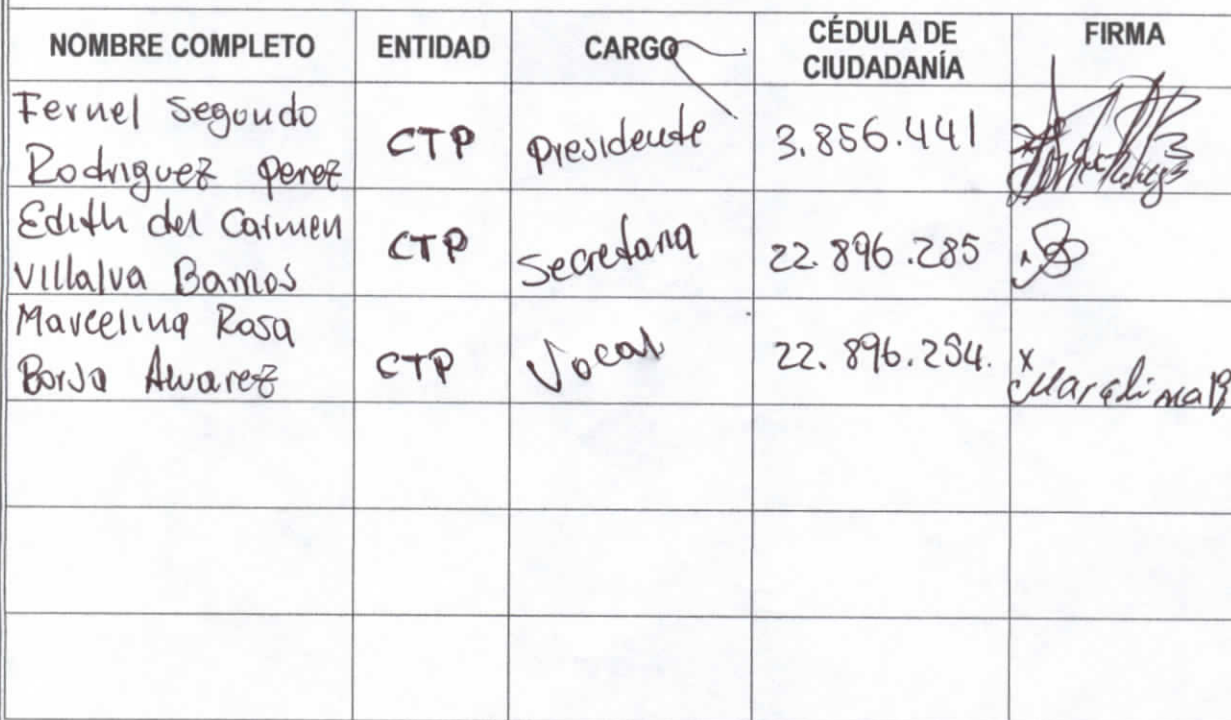 NOMBRE COMPLETO ENTIDAD CARGO CÉDULA DE CIUDADANÍA FIRMA
Fernel Segundo
Rodriguez perez CTP presidente 3.856.441
Edith del Carmen
Villalva Barrios CTP Secretaria 22.896.285
Marcelina Rosa
Borja Alvarez CTP Vocal 22.896.254. x Marcelina B